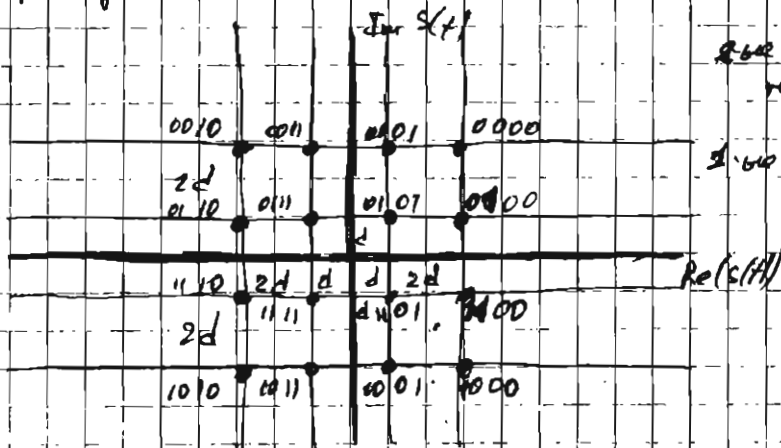 Im S(t)
0010 0011 0001 0000
2d
0110 0111 0101 0100
d
Re(s(t))
1110 2d d d 2d
1111 d 1101 1100
2d
1010 1011 1001 1000